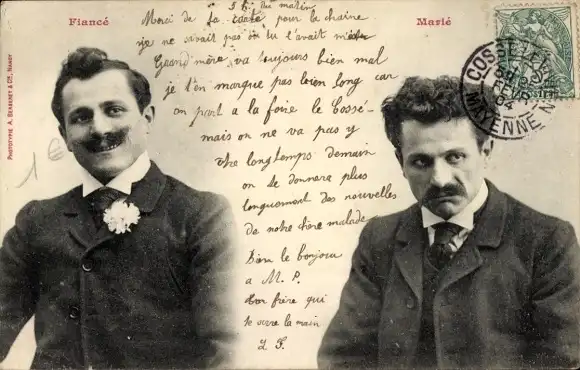 Fiancé
5 h du matin
Marié
Merci de ta carte pour la chaîne
je ne savait pas ou tu l'avait
Grand mère va toujours bien mal
je t'en marque pas bien long car
on part a la foire le Cossé
mais on ne va pas y
être longtemps demain
on te donnera plus
longuement des nouvelles
de notre chère malade
Bien le bonjour
a M. P.
ton frère qui
te serre la main
L G.
PHOTOTYPIE A. BERGERET & Cie, NANCY
1€
COSSÉ-LE-V
04
MAYENNE